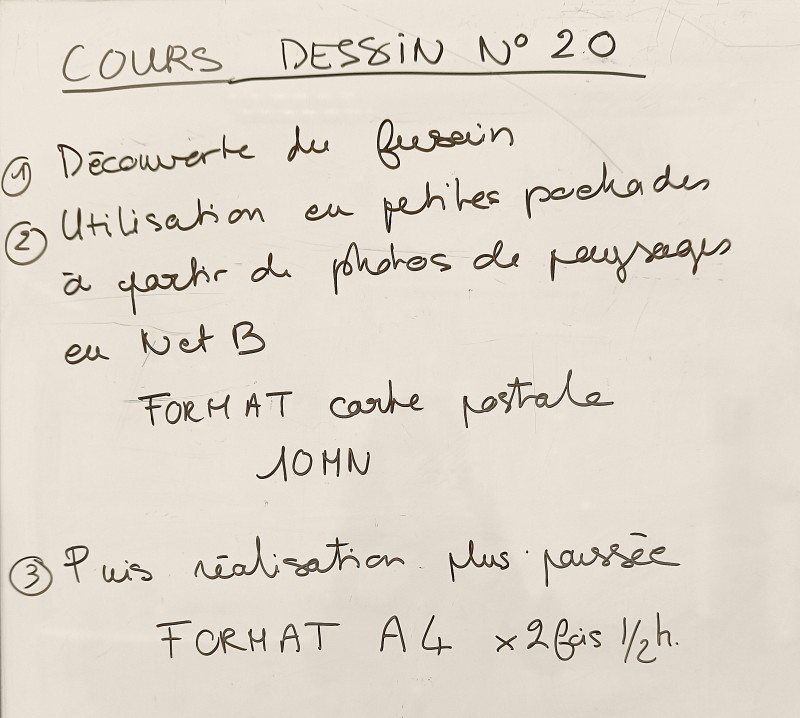 COURS DESSIN N° 20
① Découverte du fusain
② Utilisation en petites pochades
à partir de photos de paysages
en N et B
FORMAT carte postale
10 MN
③ Puis réalisation plus poussée
FORMAT A4 x 2 fois 1/2 h.